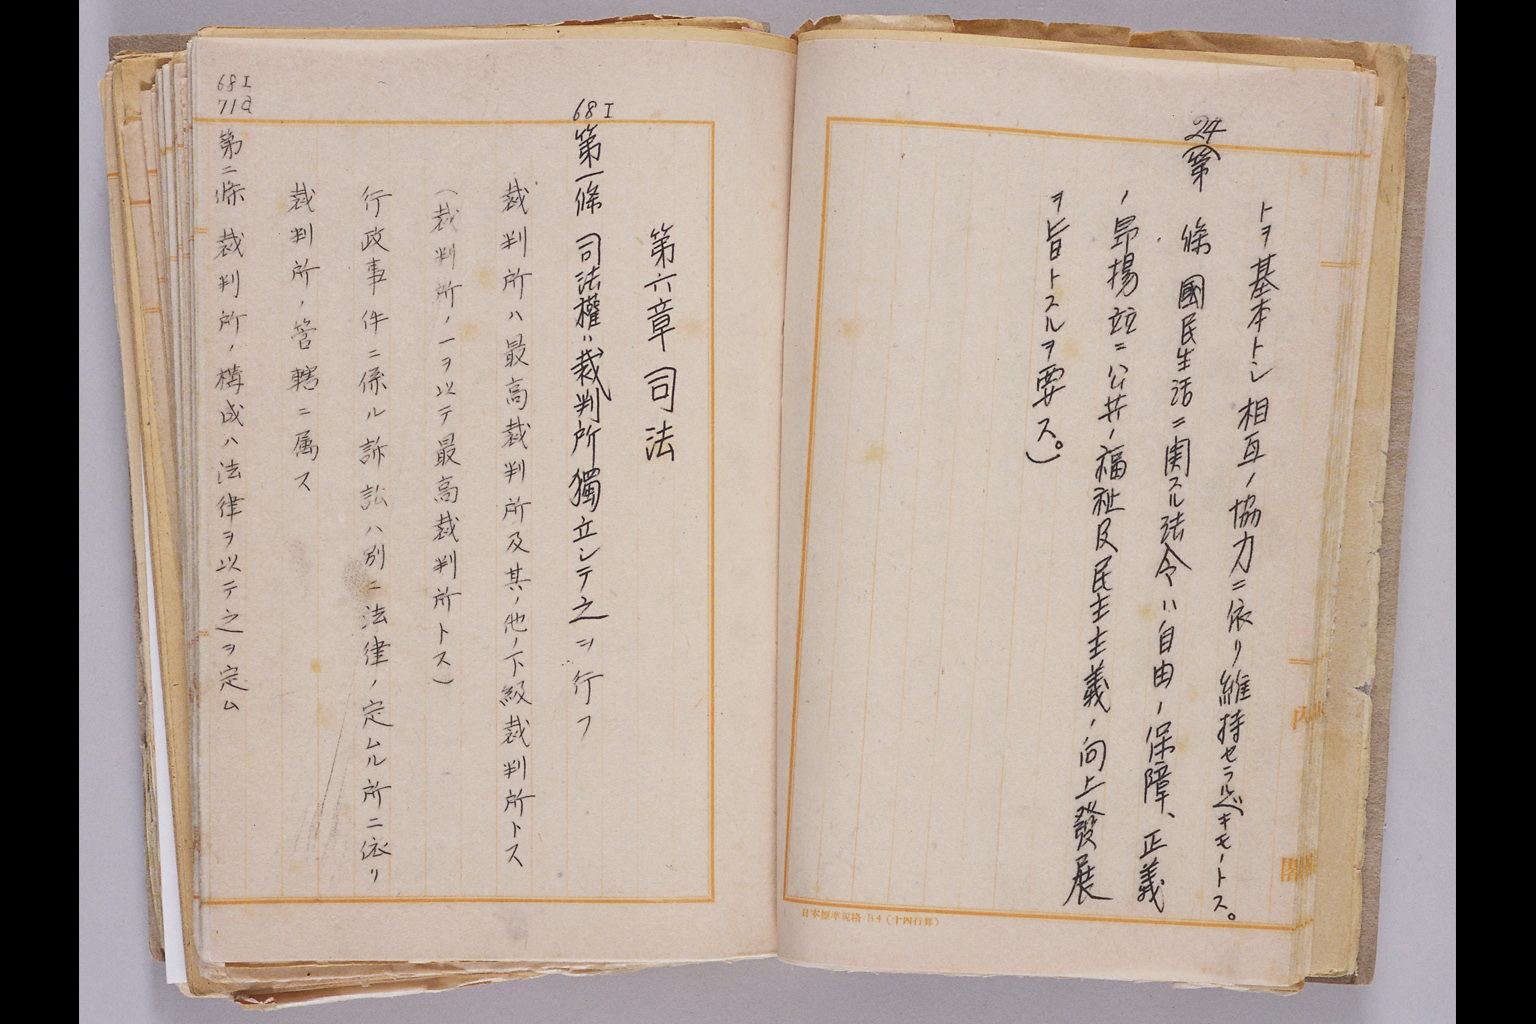 トヲ基本トシ相互ノ協力ニ依リ維持セラルベキモノトス。
24
(第　條 國民生活ニ関スル法令ハ自由ノ保障、正義
ノ昻揚竝ニ公共ノ福祉及民主主義ノ向上發展
ヲ旨トスルヲ要ス。)
日本標準規格 B4 (十四行罫)
内
閣
第六章 司法
68 I
第一條 司法權ハ裁判所獨立シテ之ヲ行フ
裁判所ハ最高裁判所及其ノ他ノ下級裁判所トス
(裁判所ノ一ヲ以テ最高裁判所トス)
行政事件ニ係ル訴訟ハ別ニ法律ノ定ムル所ニ依リ
裁判所ノ管轄ニ属ス
68 I
71 a
第二條 裁判所ノ構成ハ法律ヲ以テ之ヲ定ム